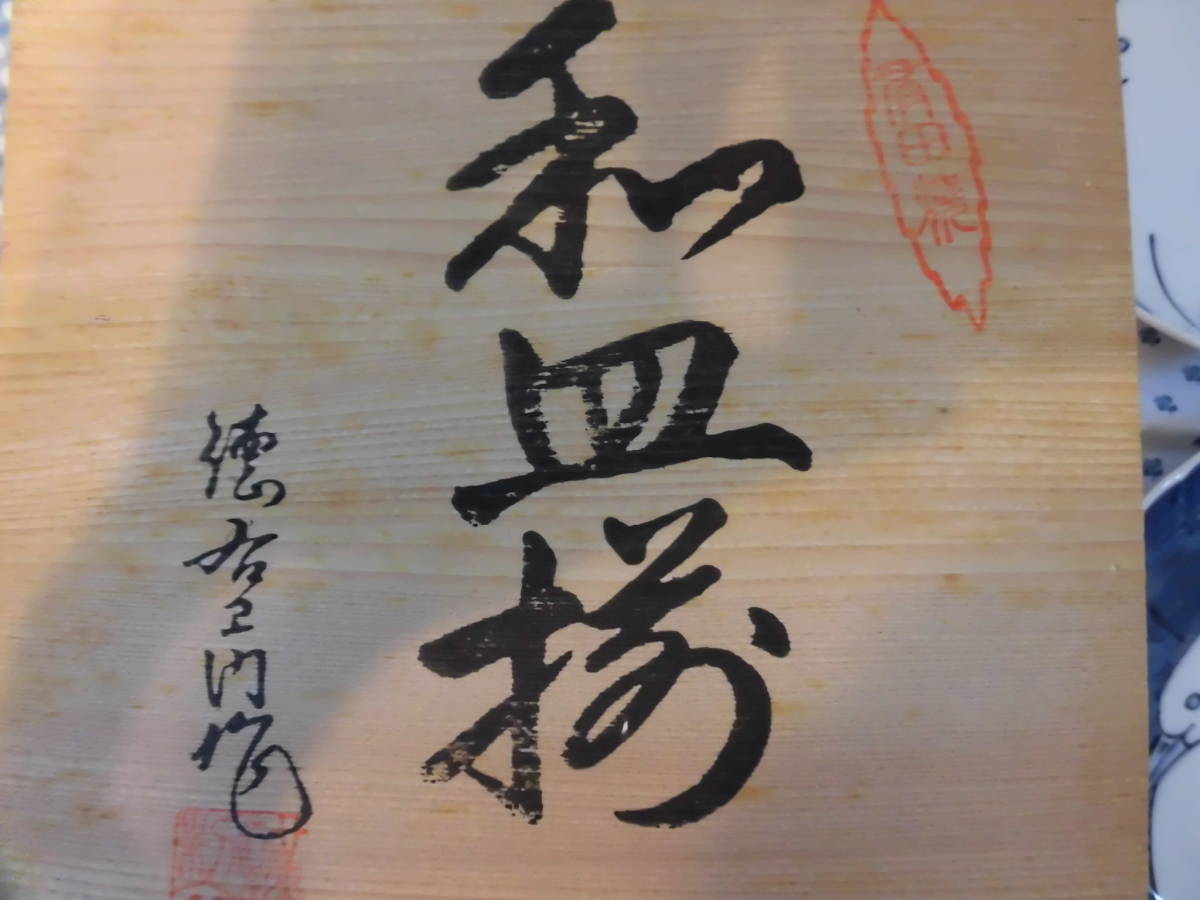 有田焼
和皿揃
徳右エ門作